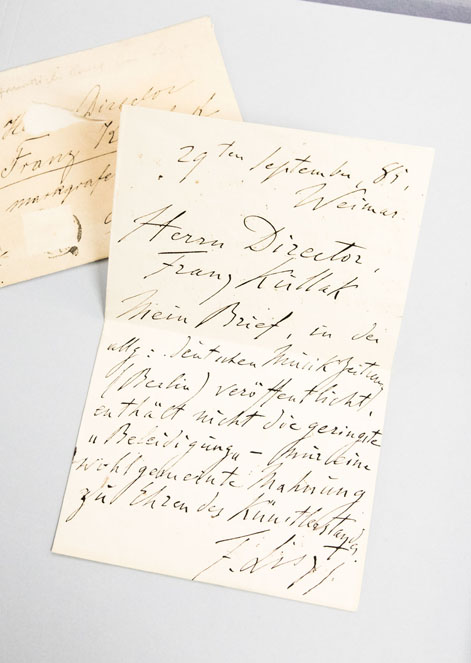 Herrn Director
Franz K
markgrafe
29ten September, 85,
Weimar.
Herrn Director,
Franz Kullak
Mein Brief, in der
allg: deutschen Musik Zeitung
(Berlin) veröffentlicht,
enthält nicht die geringste
„Beleidigung„ – nur eine
wohlgemeinte Mahnung
zu Ehren des Künstlerstandes.
F. Liszt